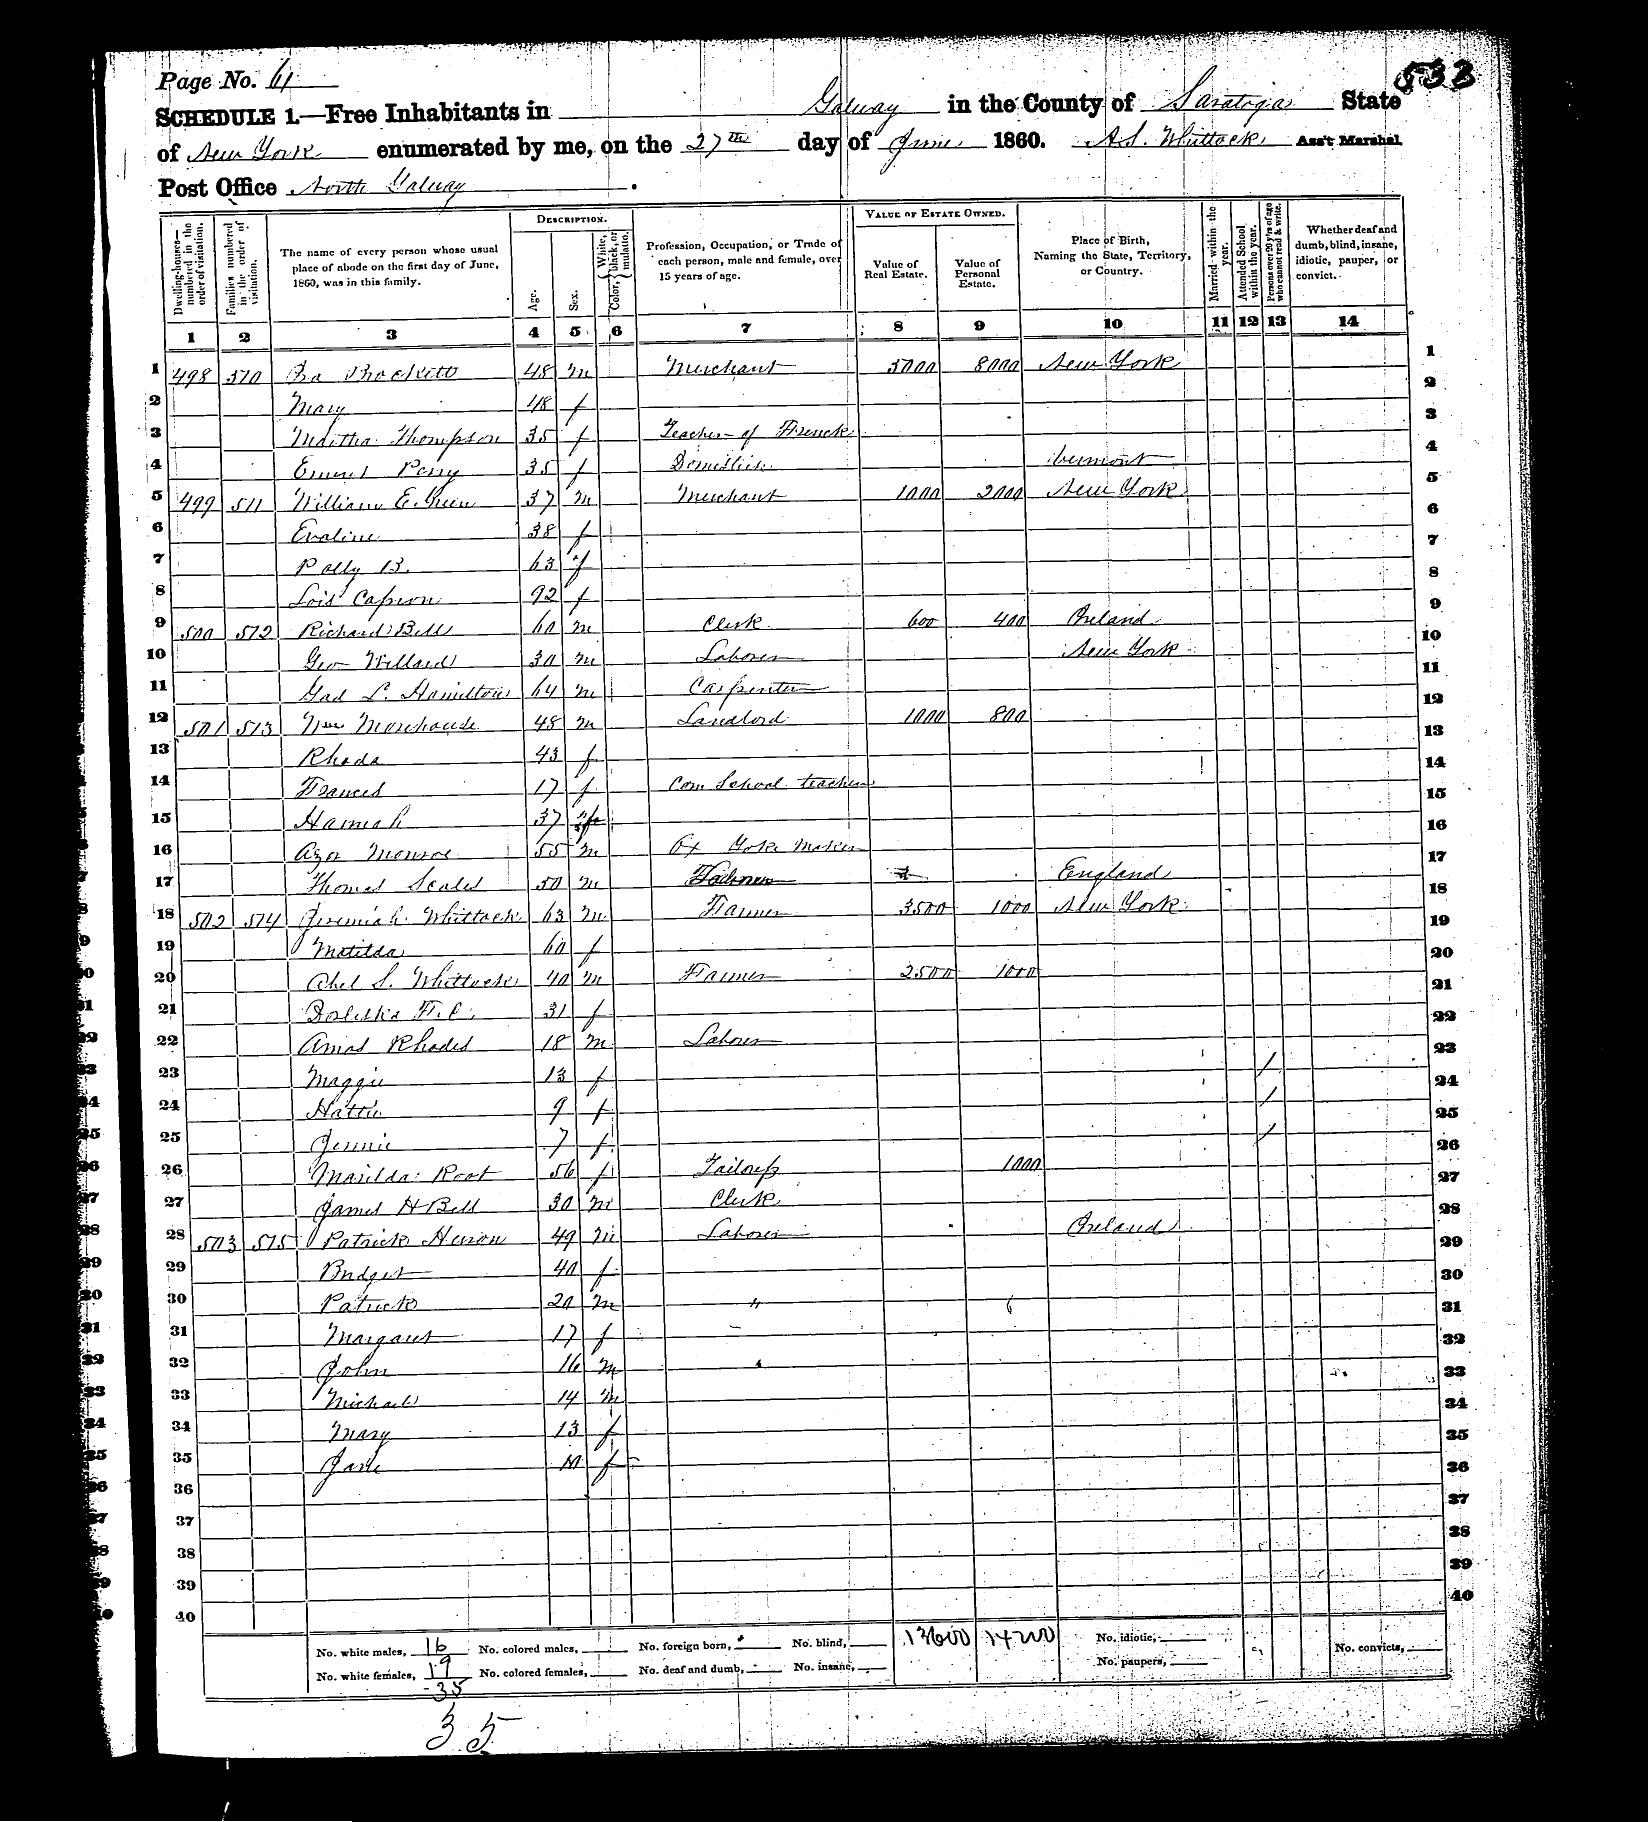 533
Page No. 61
SCHEDULE 1.—Free Inhabitants in Galway in the County of Saratoga State
of New York enumerated by me, on the 27th day of June 1860. A.S. Whitlock Ass't Marshal
Post Office North Galway.
Dwelling-houses—numbered in the order of visitation.
Families numbered in the order of visitation.
The name of every person whose usual place of abode on the first day of June, 1860, was in this family.
DESCRIPTION.
Age.
Sex.
Color, White, black, or mulatto.
Profession, Occupation, or Trade of each person, male and female, over 15 years of age.
VALUE OF ESTATE OWNED.
Value of Real Estate.
Value of Personal Estate.
Place of Birth, Naming the State, Territory, or Country.
Married within the year.
Attended School within the year.
Persons over 20 y'rs of age who cannot read & write.
Whether deaf and dumb, blind, insane, idiotic, pauper, or convict.
1 2 3 4 5 6 7 8 9 10 11 12 13 14
1 498 510 Ira Brockett 48 m Merchant 5000 8000 New York 1
2 Mary 48 f 2
3 Martha Thompson 35 f Teacher of French 3
4 Perry 35 f Domestic Vermont 4
5 499 511 William E. Green 37 m Merchant 1000 2000 New York 5
6 Evaline 38 f 6
7 Polly B. 63 f 7
8 Lois Capron 92 f 8
9 500 512 Richard Bell 60 m Clerk 600 400 Ireland 9
10 Geo Willard 30 m Laborer New York 10
11 Gad L. Hamilton 64 m Carpenter 11
12 501 513 Wm Morehouse 48 m Landlord 1000 800 12
13 Rhoda 43 f 13
14 Frances 17 f Com School teacher 14
15 Hannah 37 f 15
16 Azor Monroe 55 m Ox Yoke Maker 16
17 Thomas Scales 50 m England 17
18 502 514 Jeremiah Whitlock 63 m Farmer 3500 1000 New York 18
19 Matilda 60 f 19
20 Abel S. Whitlock 40 m Farmer 2500 1000 20
21 F. C. 31 f 21
22 Amos Rhodes 18 m Laborer 22
23 Maggie 13 f / 23
24 Hattie 9 f / 24
25 Jennie 7 f / 25
26 Marilda Root 56 f Tailoress 1000 26
27 James H Bell 30 m Clerk 27
28 503 515 Patrick Heron 49 m Laborer Ireland 28
29 Bridget 40 f 29
30 Patrick 20 m " 30
31 Margaret 17 f 31
32 John 16 m 32
33 Michael 14 m 33
34 Mary 13 f 34
35 Jane 10 f 35
36 36
37 37
38 38
39 39
40 40
No. white males, 16 No. colored males, No. foreign born, No. blind, 13600 14200 No. idiotic, No. convicts,
No. white females, 19 No. colored females, No. deaf and dumb, No. insane, No. paupers,
35
35